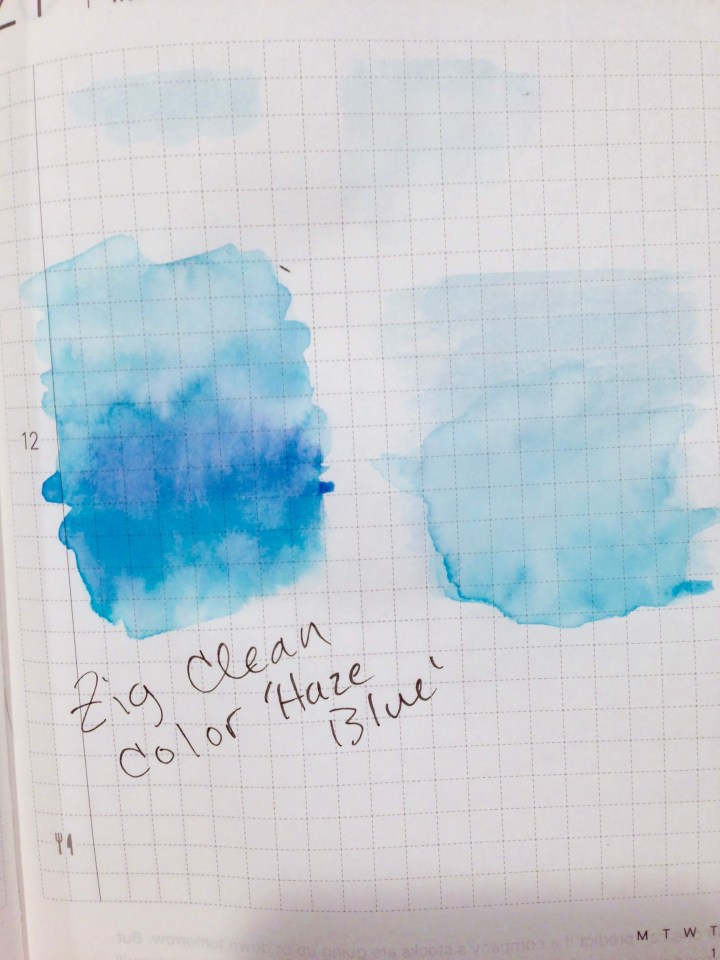 12
Zig Clean
Color 'Haze
Blue'
M T W T
1